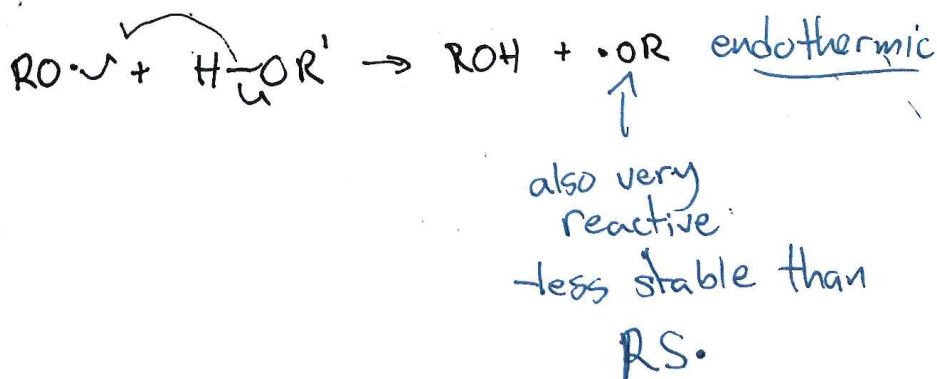 RO· + H-OR' → ROH + ·OR endothermic
also very
reactive
-less stable than
RS·